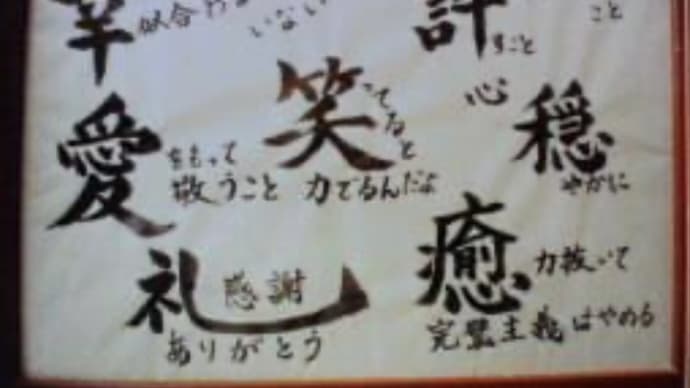 幸
いない
許すこと
こと
笑ってると
力でるんだよ
愛をもって
敬うこと
心穏やかに
礼 感謝
ありがとう
癒 力抜いて
完璧主義はやめる